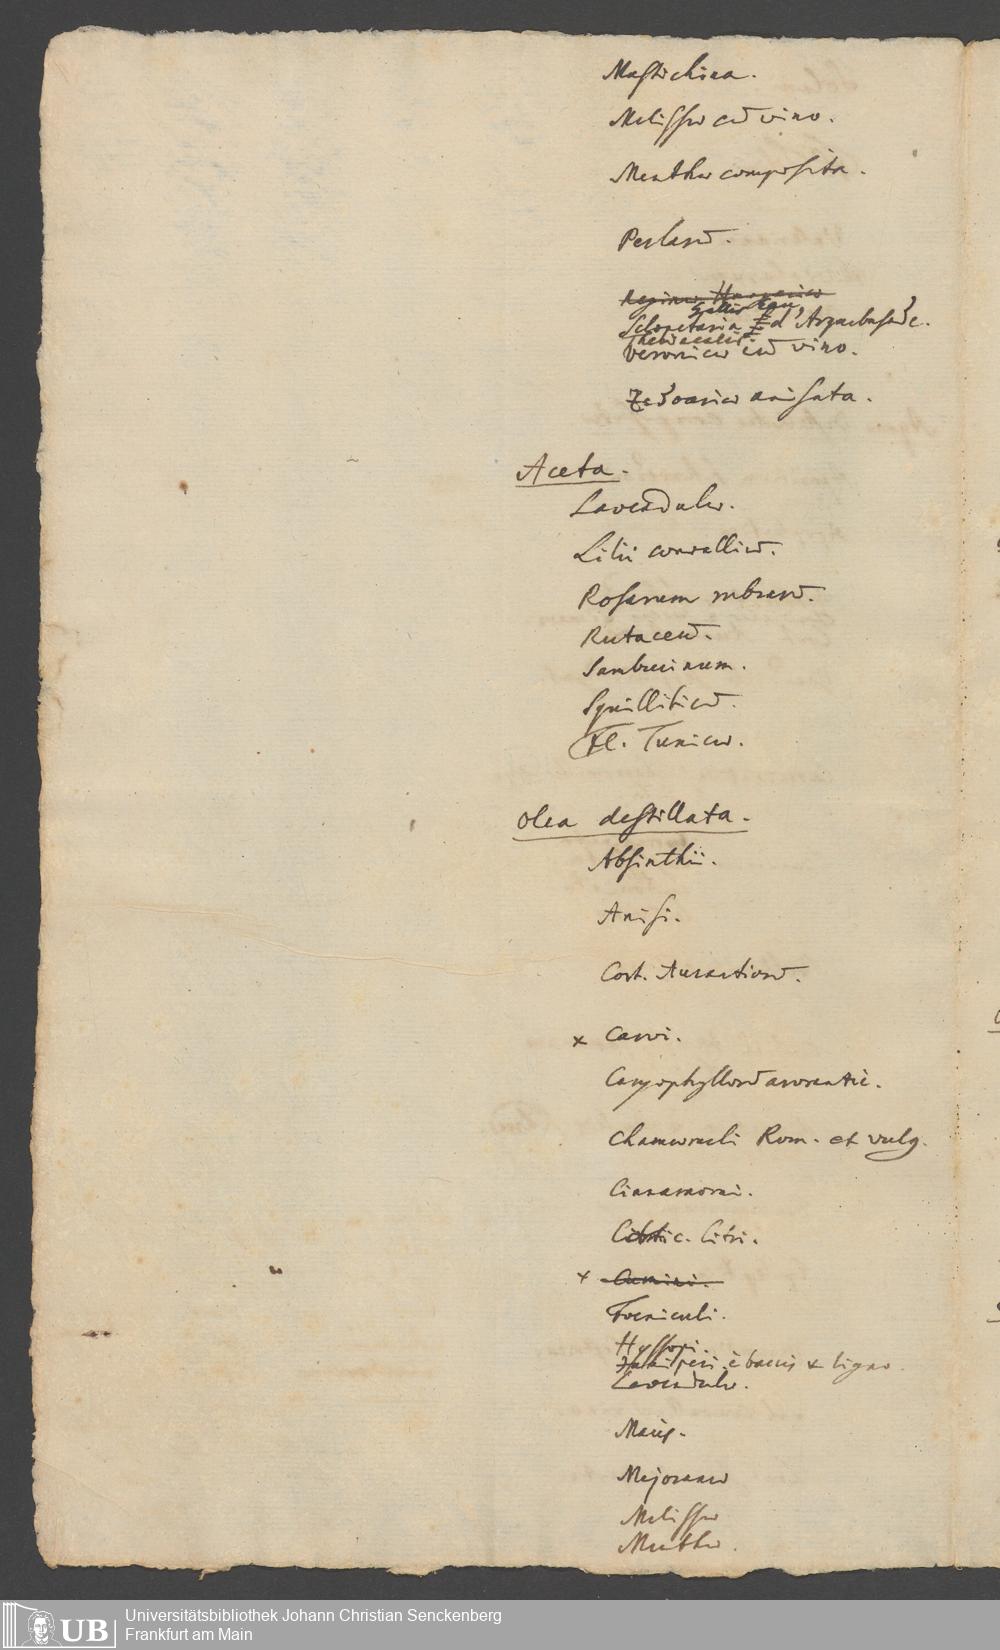 Mastichina.
Melissæ cū vino.
Menthæ composita.
Perlarū.
Reginæ Hungaricæ
Gallis Eau
Sclopetaria d'Arquebusade.
Theriacalis.
Veronicæ cū vino.
Zedoariæ anisata.
Aceta.
Lavendulæ.
Lilii convalliū.
Rosarum rubrarū.
Rutaceū.
Sambucinum.
Squilliticū.
Fl. Tunicæ.
Olea destillata.
Absinthii.
Anisi.
Cort. Aurantiorū.
x Carvi.
Caryophyllorū aromatic.
Chamæmeli Rom. et vulg.
Cinamomi.
Citri.
x Cumini.
Foeniculi.
Hyssopi.
Juniperi. è baccis & ligno.
Lavendulæ.
Macis.
Majoranæ
Melissæ
Menthæ.
Universitätsbibliothek Johann Christian Senckenberg
Frankfurt am Main
UB